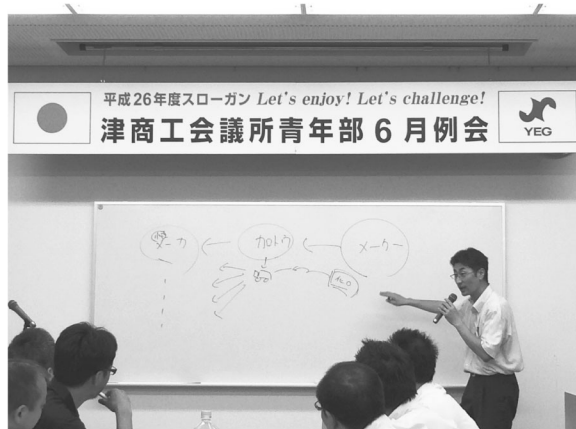 平成26年度スローガン Let's enjoy! Let's challenge!
津商工会議所青年部6月例会
YEG
カロトウ
メーカー